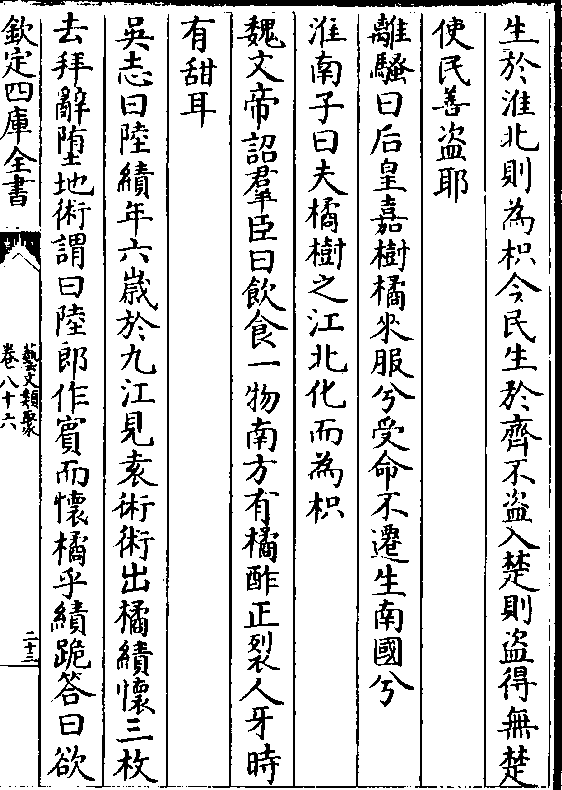 生於淮北則為枳今民生於齊不盗入楚則盗得無楚
使民善盗耶
離騷曰后皇嘉樹橘來服兮受命不遷生南國兮
淮南子曰夫橘樹之江北化而為枳
魏文帝詔羣臣曰飲食一物南方有橘酢正裂人牙時
有甜耳
吳志曰陸績年六歲於九江見袁術術出橘績懷三枚
去拜辭墮地術謂曰陸郎作賓而懷橘乎績跪答曰欲
欽定四庫全書
藝文類聚
卷八十六
二十三